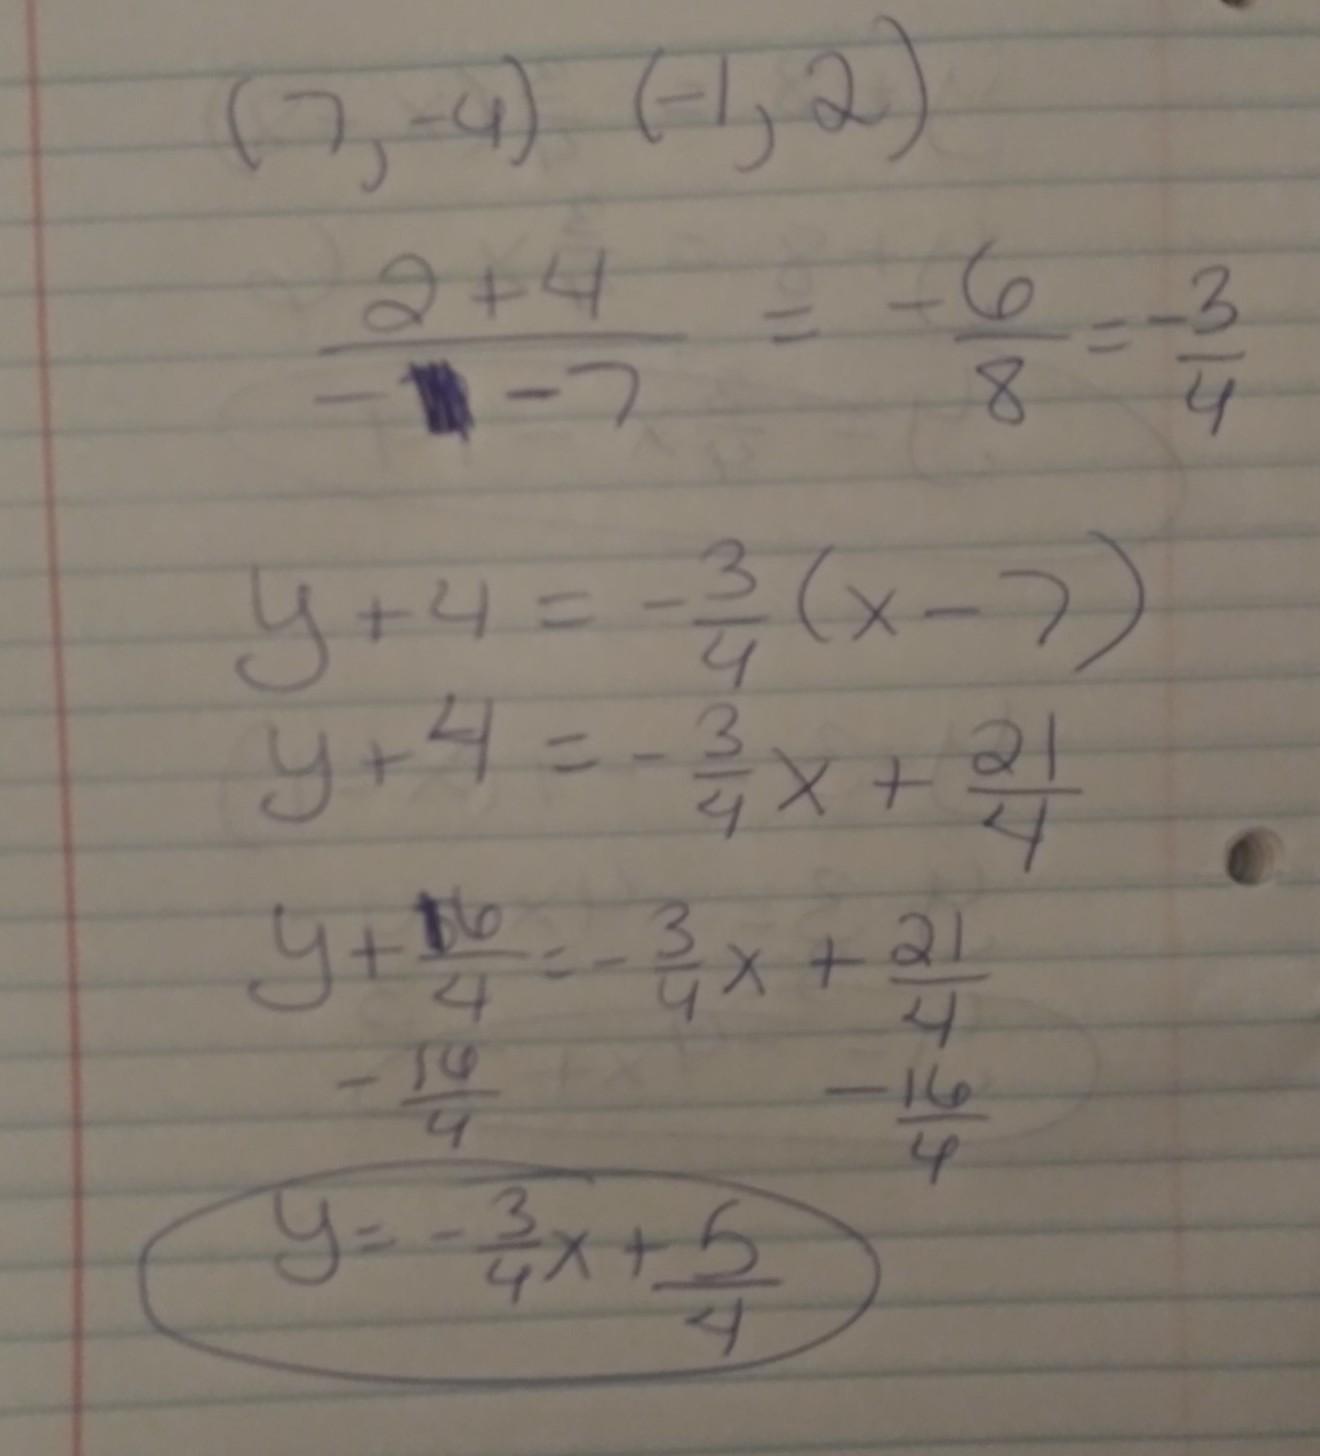 (7, -4) (-1, 2)
2 + 4 / -1 - 7 = -6/8 = -3/4
y + 4 = -3/4 (x - 7)
y + 4 = -3/4 x + 21/4
y + 16/4 = -3/4 x + 21/4
-16/4 -16/4
y = -3/4 x + 5/4